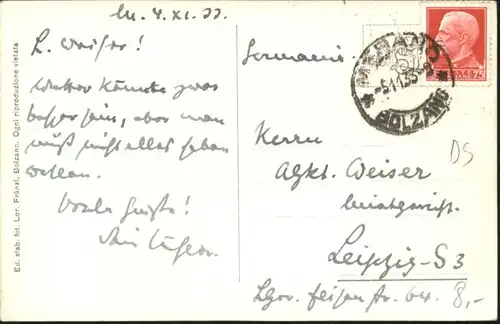 M. 4. XI. 33.
L. Weiser!
Wetter könnte zwar
besser sein, aber man
muß nicht alles haben
wollen.
Viele Grüße!
Germania
MERANO
BOLZANO
Herrn
Weiser
Leipzig-S3
8,-
DS
Ed. stab. fot. Lor. Fränzl, Bolzano. Ogni riproduzione vietata